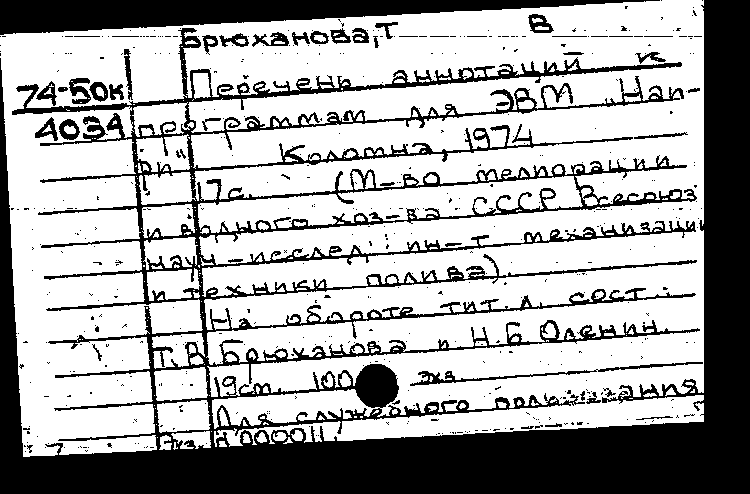 Брюханова, Т В
74-50к Перечень аннотаций к
4034 программам для ЭВМ „Наи-
ри“ Коломна, 1974
17с. (М-во мелиорации
и водного хоз-ва СССР Всесоюз
науч-исслед. ин-т механизации
и техники полива).
На обороте тит. л. сост.:
Т.В Брюханова и Н.Б Оленин.
19см. 100 экз.
Для служебного пользования
Экз. N 000011.